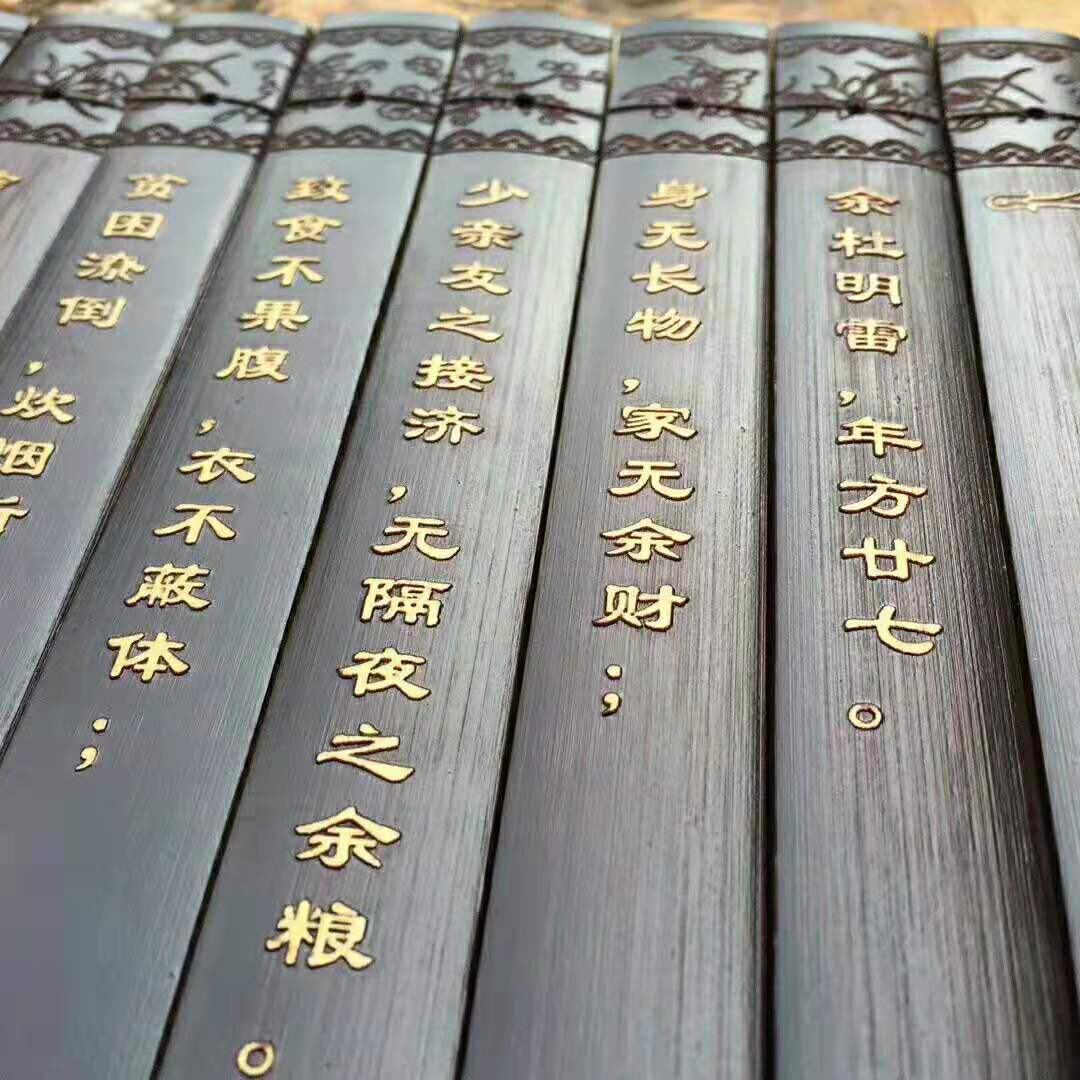 余杜明雷,年方廿七。
身无长物,家无余财;
少亲友之接济,无隔夜之余粮。
致食不果腹,衣不蔽体;
贫困潦倒,炊烟断